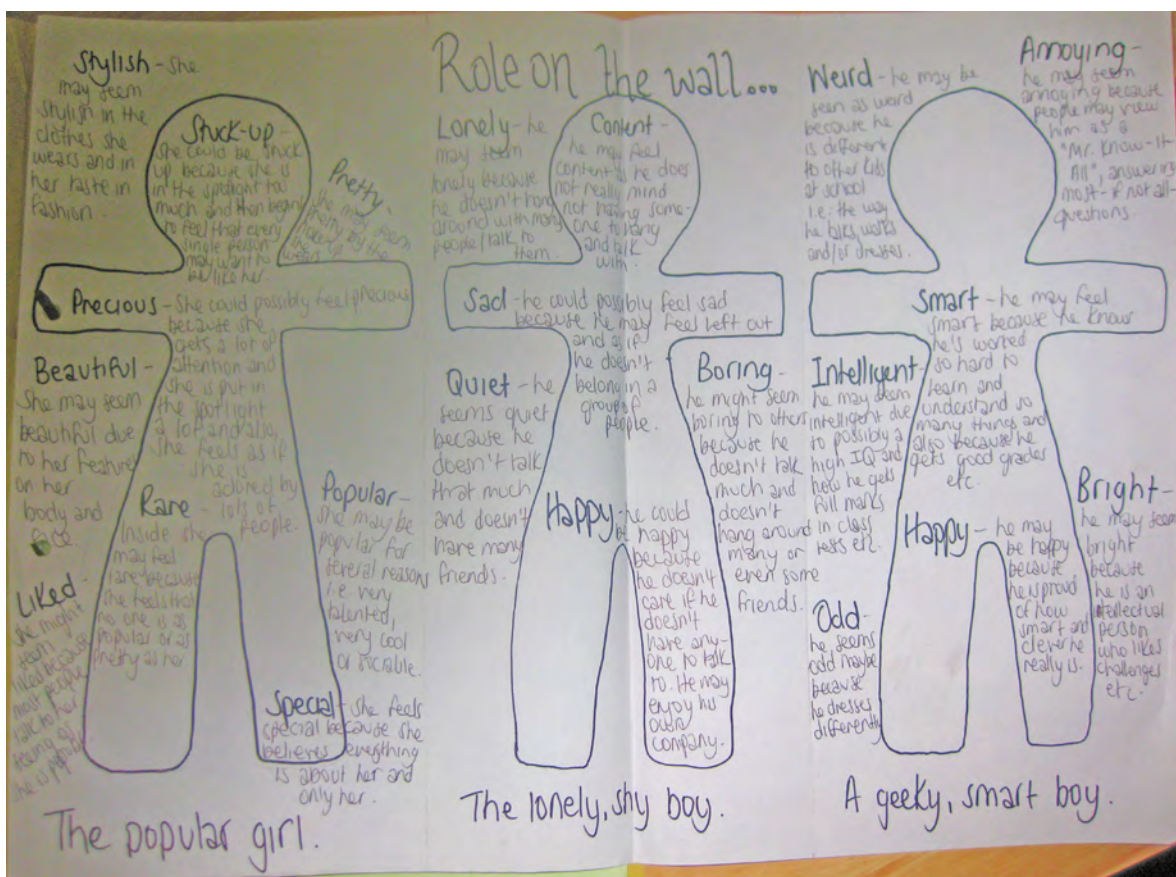 Role on the wall...
Stylish - she
may seem
stylish in the
clothes she
wears and in
her taste in
fashion.
Stuck-up -
she could be stuck
up because she is
in the spotlight too
much and then begins
to feel that every
single person
may want to
be like her.
Pretty -
she may seem
pretty by the
make up
she wears
Precious - She could possibly feel precious
because she
gets a lot of
attention and
she is put in
the spotlight
a lot and also,
she feels as if
she is
adored by
lots of
people.
Beautiful -
She may seem
beautiful due
to her features
on her
body and
face.
Rare -
Inside she
may feel
rare because
she feels that
no one is as
popular or as
pretty as her
Popular -
she may be
popular for
several reasons
i.e. very
talented,
very cool
or sociable.
Liked -
she might
seem
liked because
most people
talk to her
she is popular
Special - she feels
special because she
believes everything
is about her and
only her.
The popular girl.
Lonely - he
may seem
lonely because
he doesn't hang
around with many
people/talk to
them.
Content -
he may feel
content as he does
not really mind
not having some-
one to hang
and talk
with.
Sad - he could possibly feel sad
because he may feel left out
and as if
he doesn't
belong in a
group of
people.
Quiet - he
seems quiet
because he
doesn't talk
that much
and doesn't
have many
friends.
Boring -
he might seem
boring to others
because he
doesn't talk
much and
doesn't
hang around
many or
even some
friends.
Happy - he could
be happy
because
he doesn't
care if he
doesn't
have any-
one to talk
to. He may
enjoy his
own
company.
The lonely, shy boy.
Weird - he may be
seen as weird
because he
is different
to other kids
at school
i.e: the way
he talks, works
and/or dresses.
Annoying -
he may seem
annoying because
people may view
him as a
"Mr. Know-It
All", answering
most - if not all -
questions.
Smart - he may feel
smart because he knows
he's worked
so hard to
learn and
understand so
many things and
also because he
gets good grades
etc.
Intelligent -
he may seem
intelligent due
to possibly a
high IQ and
how he gets
full marks
in class
tests etc.
Happy - he may
be happy
because
he is proud
of how
smart and
clever he
really is.
Bright -
he may seem
bright
because
he is an
intellectual
person
who likes
challenges
etc.
Odd -
he seems
odd maybe
because
he dresses
differently
A geeky, smart boy.